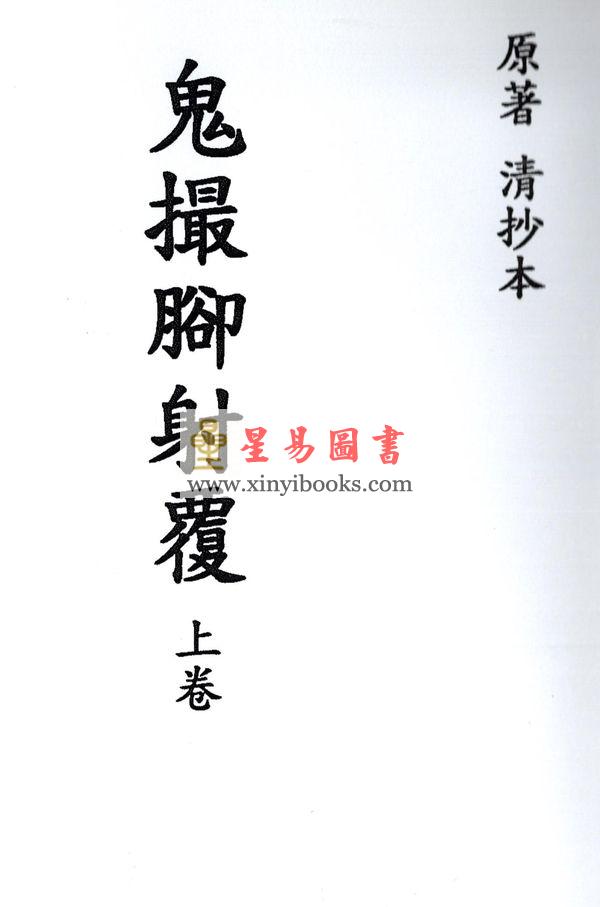 原著 清抄本
鬼撮腳射覆 上卷
星易圖書
www.xinyibooks.com